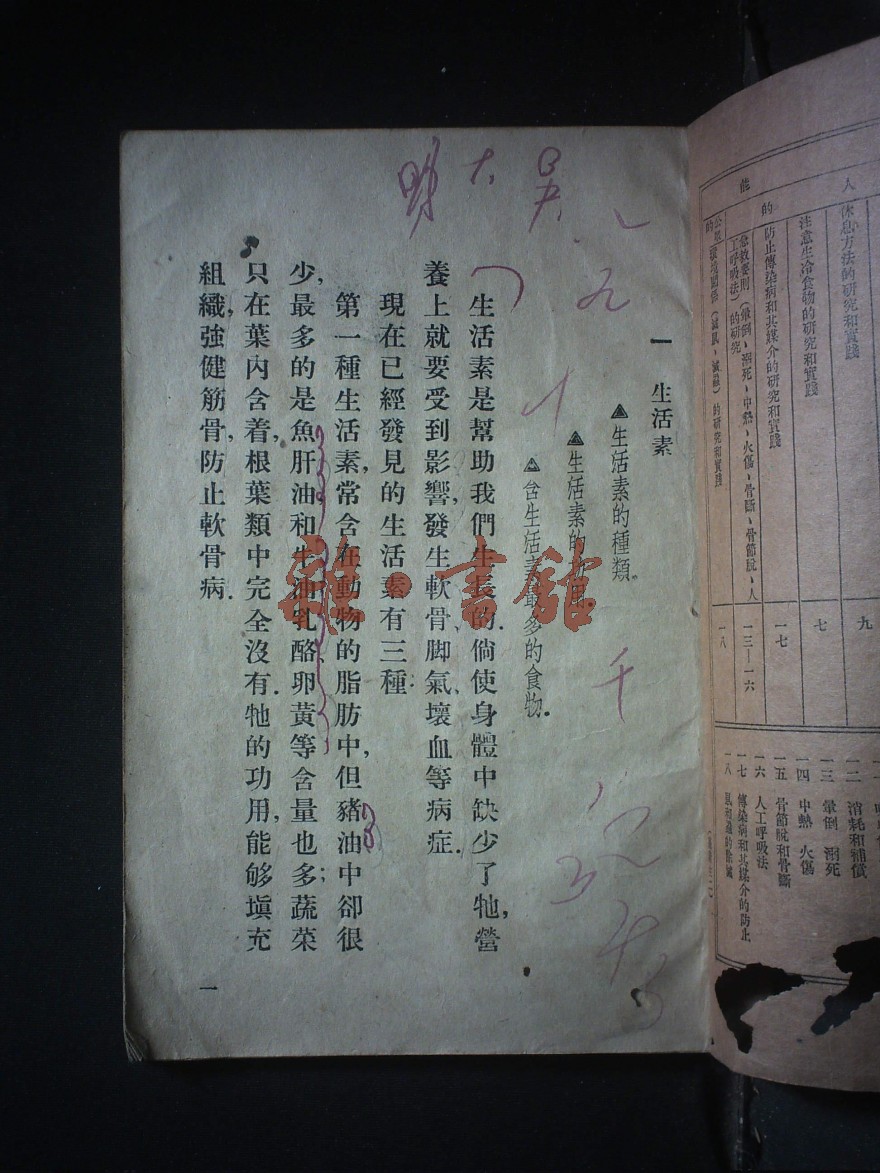 人
能
的
休息方法的研究和實踐
九
注意生冷食物的研究和實踐
七
防止傳染病和其媒介的研究和實踐
一七
急救要則(暈倒、溺死、中熱、火傷、骨斷、骨節脫、人
工呼吸法)的研究
一三—一六
的研究和實踐
一八
一二 消耗和補償
一三 暈倒 溺死
一四 中熱 火傷
一五 骨節脫和骨斷
一六 人工呼吸法
一七 傳染病和其媒介的防止
一八
一 生活素
▲生活素的種類.
▲生活素的功用.
▲含生活素最多的食物.
生活素是幫助我們生長的.倘使身體中缺少了牠,營
養上就要受到影響,發生軟骨、脚氣、壞血等病症.
現在已經發見的生活素有三種:
第一種生活素,常含在動物的脂肪中,但豬油中卻很
少,最多的是魚肝油,和牛油、乳酪、卵黃等含量也多;蔬菜
只在葉內含着,根葉類中完全沒有.牠的功用,能够塡充
組織,強健筋骨,防止軟骨病.
一
雜·書館